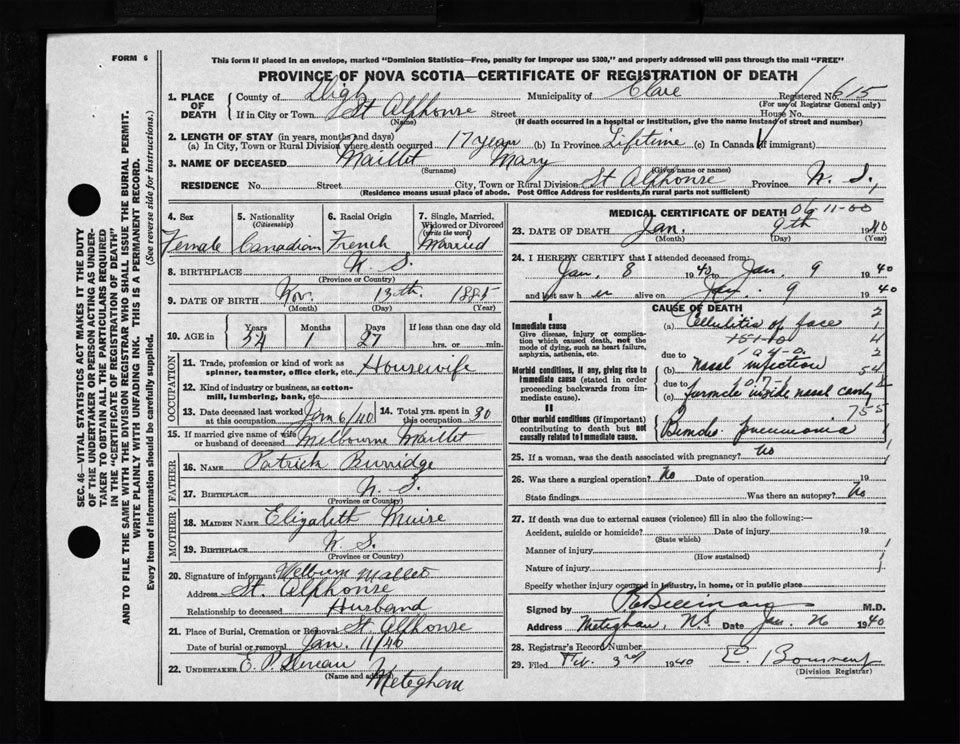 FORM 6
This form if placed in an envelope, marked "Dominion Statistics—Free, penalty for improper use $300," and properly addressed will pass through the mail "FREE"
PROVINCE OF NOVA SCOTIA—CERTIFICATE OF REGISTRATION OF DEATH
1. PLACE OF DEATH
County of Digby Municipality of Clare Registered No. 615
(For use of Registrar General only)
If in City or Town St Alphonse Street House No.
(Name) (If death occurred in a hospital or institution, give the name instead of street and number)
2. LENGTH OF STAY (in years, months and days)
(a) In City, Town or Rural Division where death occurred 17 years (b) In Province Lifetime (c) In Canada (if immigrant)
3. NAME OF DECEASED Maillet Mary
(Surname) (Given name or names)
RESIDENCE No. Street City, Town or Rural Division St Alphonse Province N. S.
(Residence means usual place of abode. Post Office Address for residents in rural parts not sufficient)
4. Sex Female
5. Nationality (Citizenship) Canadian
6. Racial Origin French
7. Single, Married, Widowed or Divorced (write the word) Married
8. BIRTHPLACE N. S.
(Province or Country)
9. DATE OF BIRTH Nov. 13th. 1885
(Month) (Day) (Year)
10. AGE in Years 54 Months 1 Days 27 If less than one day old hrs. or min.
OCCUPATION
11. Trade, profession or kind of work as spinner, teamster, office clerk, etc. Housewife
12. Kind of industry or business, as cotton-mill, lumbering, bank, etc.
13. Date deceased last worked at this occupation Jan 6/40
14. Total yrs. spent in this occupation 30
15. If married give name of wife or husband of deceased Melbourne Maillet
FATHER
16. NAME Patrick Burridge
17. BIRTHPLACE N. S.
(Province or Country)
MOTHER
18. MAIDEN NAME Elizabeth Muise
19. BIRTHPLACE N. S.
(Province or Country)
20. Signature of informant Melburn Mallet
Address St. Alphonse
Relationship to deceased Husband
21. Place of Burial, Cremation or Removal St Alphonse
Date of burial or removal Jan. 11/40
22. UNDERTAKER E. P.
(Name and address) Meteghan
MEDICAL CERTIFICATE OF DEATH 06-11-00
23. DATE OF DEATH Jan. 9th 1940
(Month) (Day) (Year)
24. I HEREBY CERTIFY that I attended deceased from:
Jan, 8 1940 to Jan, 9 1940
and last saw her alive on Jan. 9 1940
CAUSE OF DEATH
I
Immediate cause
Give disease, injury or complication which caused death, not the mode of dying, such as heart failure, asphyxia, asthenia, etc.
(a) Cellulitis of face
due to
Morbid conditions, if any, giving rise to immediate cause (stated in order proceeding backwards from immediate cause).
(b) Nasal infection
due to
(c) furuncle inside nasal cavity
II
Other morbid conditions (if important) contributing to death but not causally related to immediate cause.
pneumonia
25. If a woman, was the death associated with pregnancy? No
26. Was there a surgical operation? No Date of operation 19
State findings Was there an autopsy? No
27. If death was due to external causes (violence) fill in also the following:—
Accident, suicide or homicide? Date of injury 19
(State which)
Manner of injury
(How sustained)
Nature of injury
Specify whether injury occurred in industry, in home, or in public place
Signed by M.D.
Address Meteghan, N.S. Date Jan. 26 1940
28. Registrar's Record Number
29. Filed Feb. 3rd 1940 E.
(Division Registrar)
SEC. 46—VITAL STATISTICS ACT MAKES IT THE DUTY
OF THE UNDERTAKER OR PERSON ACTING AS UNDER-
TAKER TO OBTAIN ALL THE PARTICULARS REQUIRED
IN THE "CERTIFICATE OF REGISTRATION OF DEATH"
AND TO FILE THE SAME WITH THE DIVISION REGISTRAR WHO SHALL ISSUE THE BURIAL PERMIT.
WRITE PLAINLY WITH UNFADING INK. THIS IS A PERMANENT RECORD.
Every item of information should be carefully supplied. (See reverse side for instructions.)